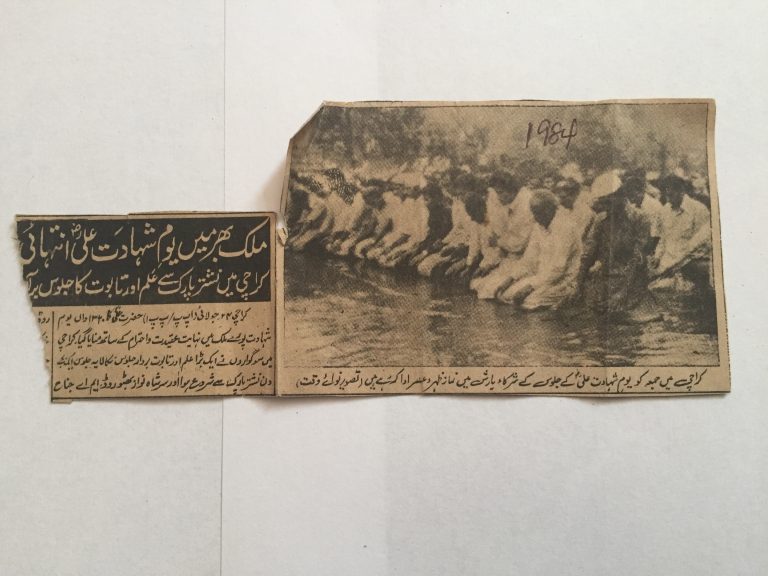 1984
ملک بھر میں یوم شہادت علیؓ انتہائی
کراچی میں نشتر پارک سے علم اور تابوت کا جلوس برآ
کراچی ۲۴ جولائی (اپ پ/پ پ ا) حضرت علیؓ کا ۱۳۴۰واں یوم
شہادت پورے ملک میں نہایت عقیدت واحترام کے ساتھ منایا گیا کراچی
میں سوگواروں نے ایک بڑا علم اور تابوت بردار جلوس نکالا یہ جلوس ایک بجے
دن نشتر پارک سے شروع ہوا اور سر شاہ نواز بھٹو روڈ، ایم اے جناح
کراچی میں جمعہ کو یوم شہادت علیؓ کے جلوس کے شرکاء بارش میں نماز ظہر و عصر ادا کر رہے ہیں (تصویر نوائے وقت)